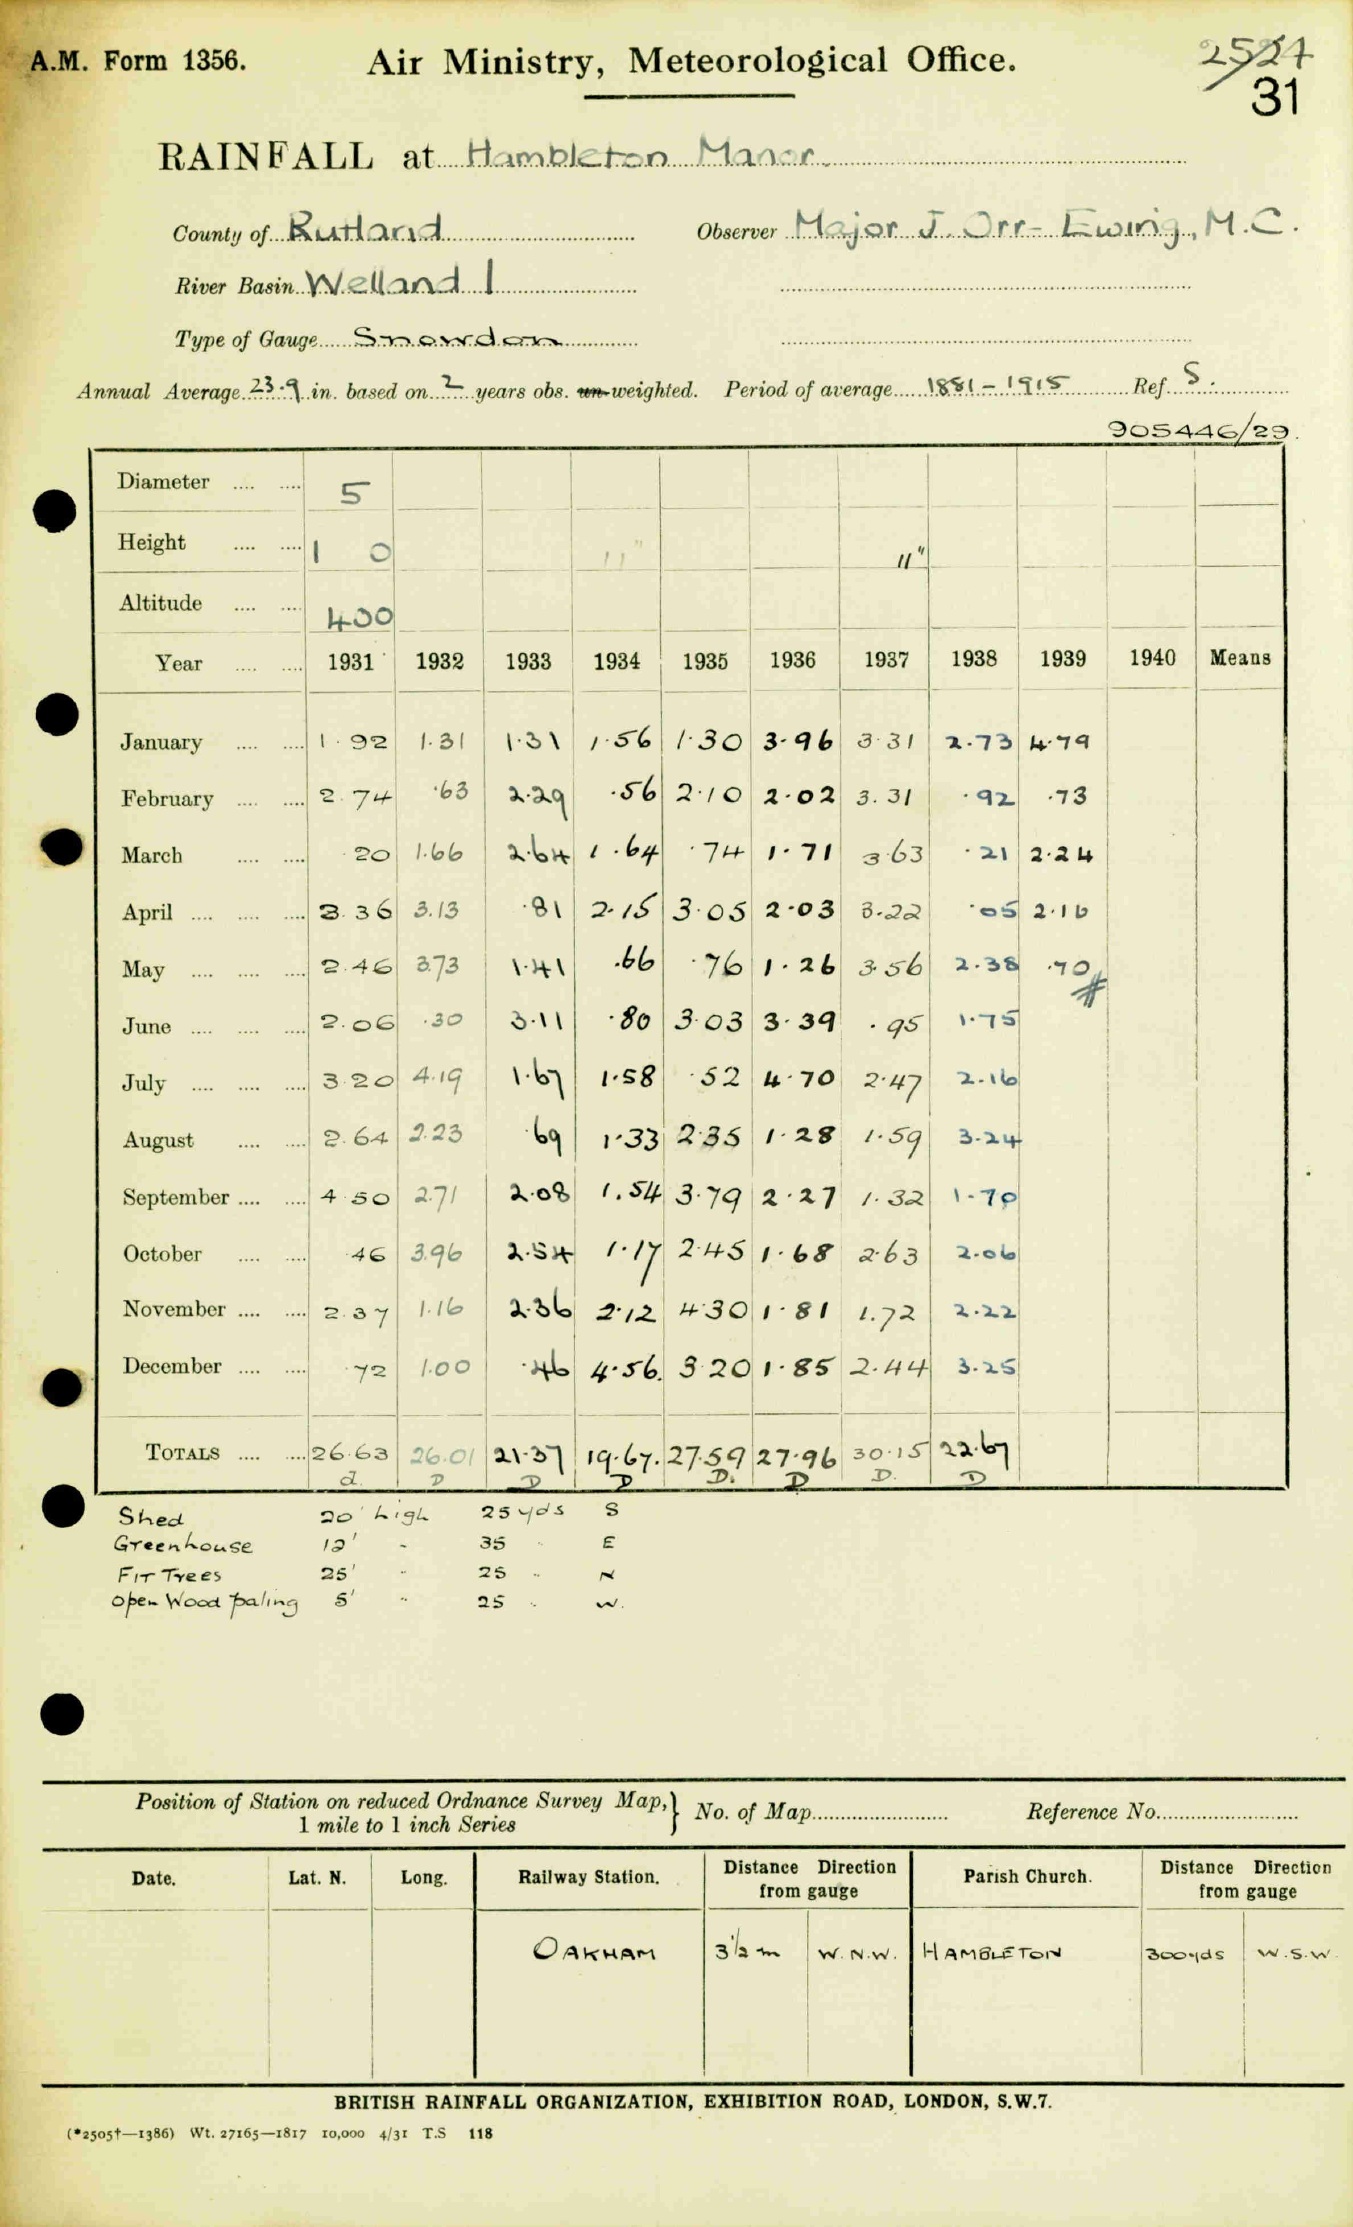 A.M. Form 1356. Air Ministry, Meteorological Office. 2524
31
RAINFALL at Hambleton Manor.
County of Rutland Observer Major J. Orr-Ewing, M.C.
River Basin Welland 1
Type of Gauge Snowdon
Annual Average 23.9 in. based on 2 years obs. un-weighted. Period of average 1881-1915 Ref S.
905446/29.
Diameter .... .... 5
Height .... .... 1 0 11" 11"
Altitude .... .... 400
Year .... .... 1931 1932 1933 1934 1935 1936 1937 1938 1939 1940 Means
January .... .... 1.92 1.31 1.31 1.56 1.30 3.96 3.31 2.73 4.79
February .... .... 2.74 .63 2.29 .56 2.10 2.02 3.31 .92 .73
March .... .... .20 1.66 2.64 1.64 .74 1.71 3.63 .21 2.24
April .... .... .... 3.36 3.13 .81 2.15 3.05 2.03 3.22 .05 2.16
May .... .... .... 2.46 3.73 1.41 .66 .76 1.26 3.56 2.38 .70 #
June .... .... .... 2.06 .30 3.11 .80 3.03 3.39 .95 1.75
July .... .... .... 3.20 4.19 1.67 1.58 .52 4.70 2.47 2.16
August .... .... 2.64 2.23 .69 1.33 2.35 1.28 1.59 3.24
September .... .... 4.50 2.71 2.08 1.54 3.79 2.27 1.32 1.70
October .... .... .46 3.96 2.54 1.17 2.45 1.68 2.63 2.06
November .... .... 2.37 1.16 2.36 2.12 4.30 1.81 1.72 2.22
December .... .... .72 1.00 .46 4.56. 3.20 1.85 2.44 3.25
TOTALS .... .... 26.63 26.01 21.37 19.67. 27.59 27.96 30.15 22.67
d D D D D. D D. D
Shed 20' high 25 yds S
Greenhouse 12' " 35 " E
Fir Trees 25' " 25 " N
Open Wood paling 5' " 25 " W.
Position of Station on reduced Ordnance Survey Map, } No. of Map Reference No.
1 mile to 1 inch Series
Date. Lat. N. Long. Railway Station. Distance Direction Parish Church. Distance Direction
from gauge from gauge
OAKHAM 3½ m W.N.W. HAMBLETON 300 yds W.S.W.
BRITISH RAINFALL ORGANIZATION, EXHIBITION ROAD, LONDON, S.W.7.
(*2505†—1386) Wt. 27165—1817 10,000 4/31 T.S 118